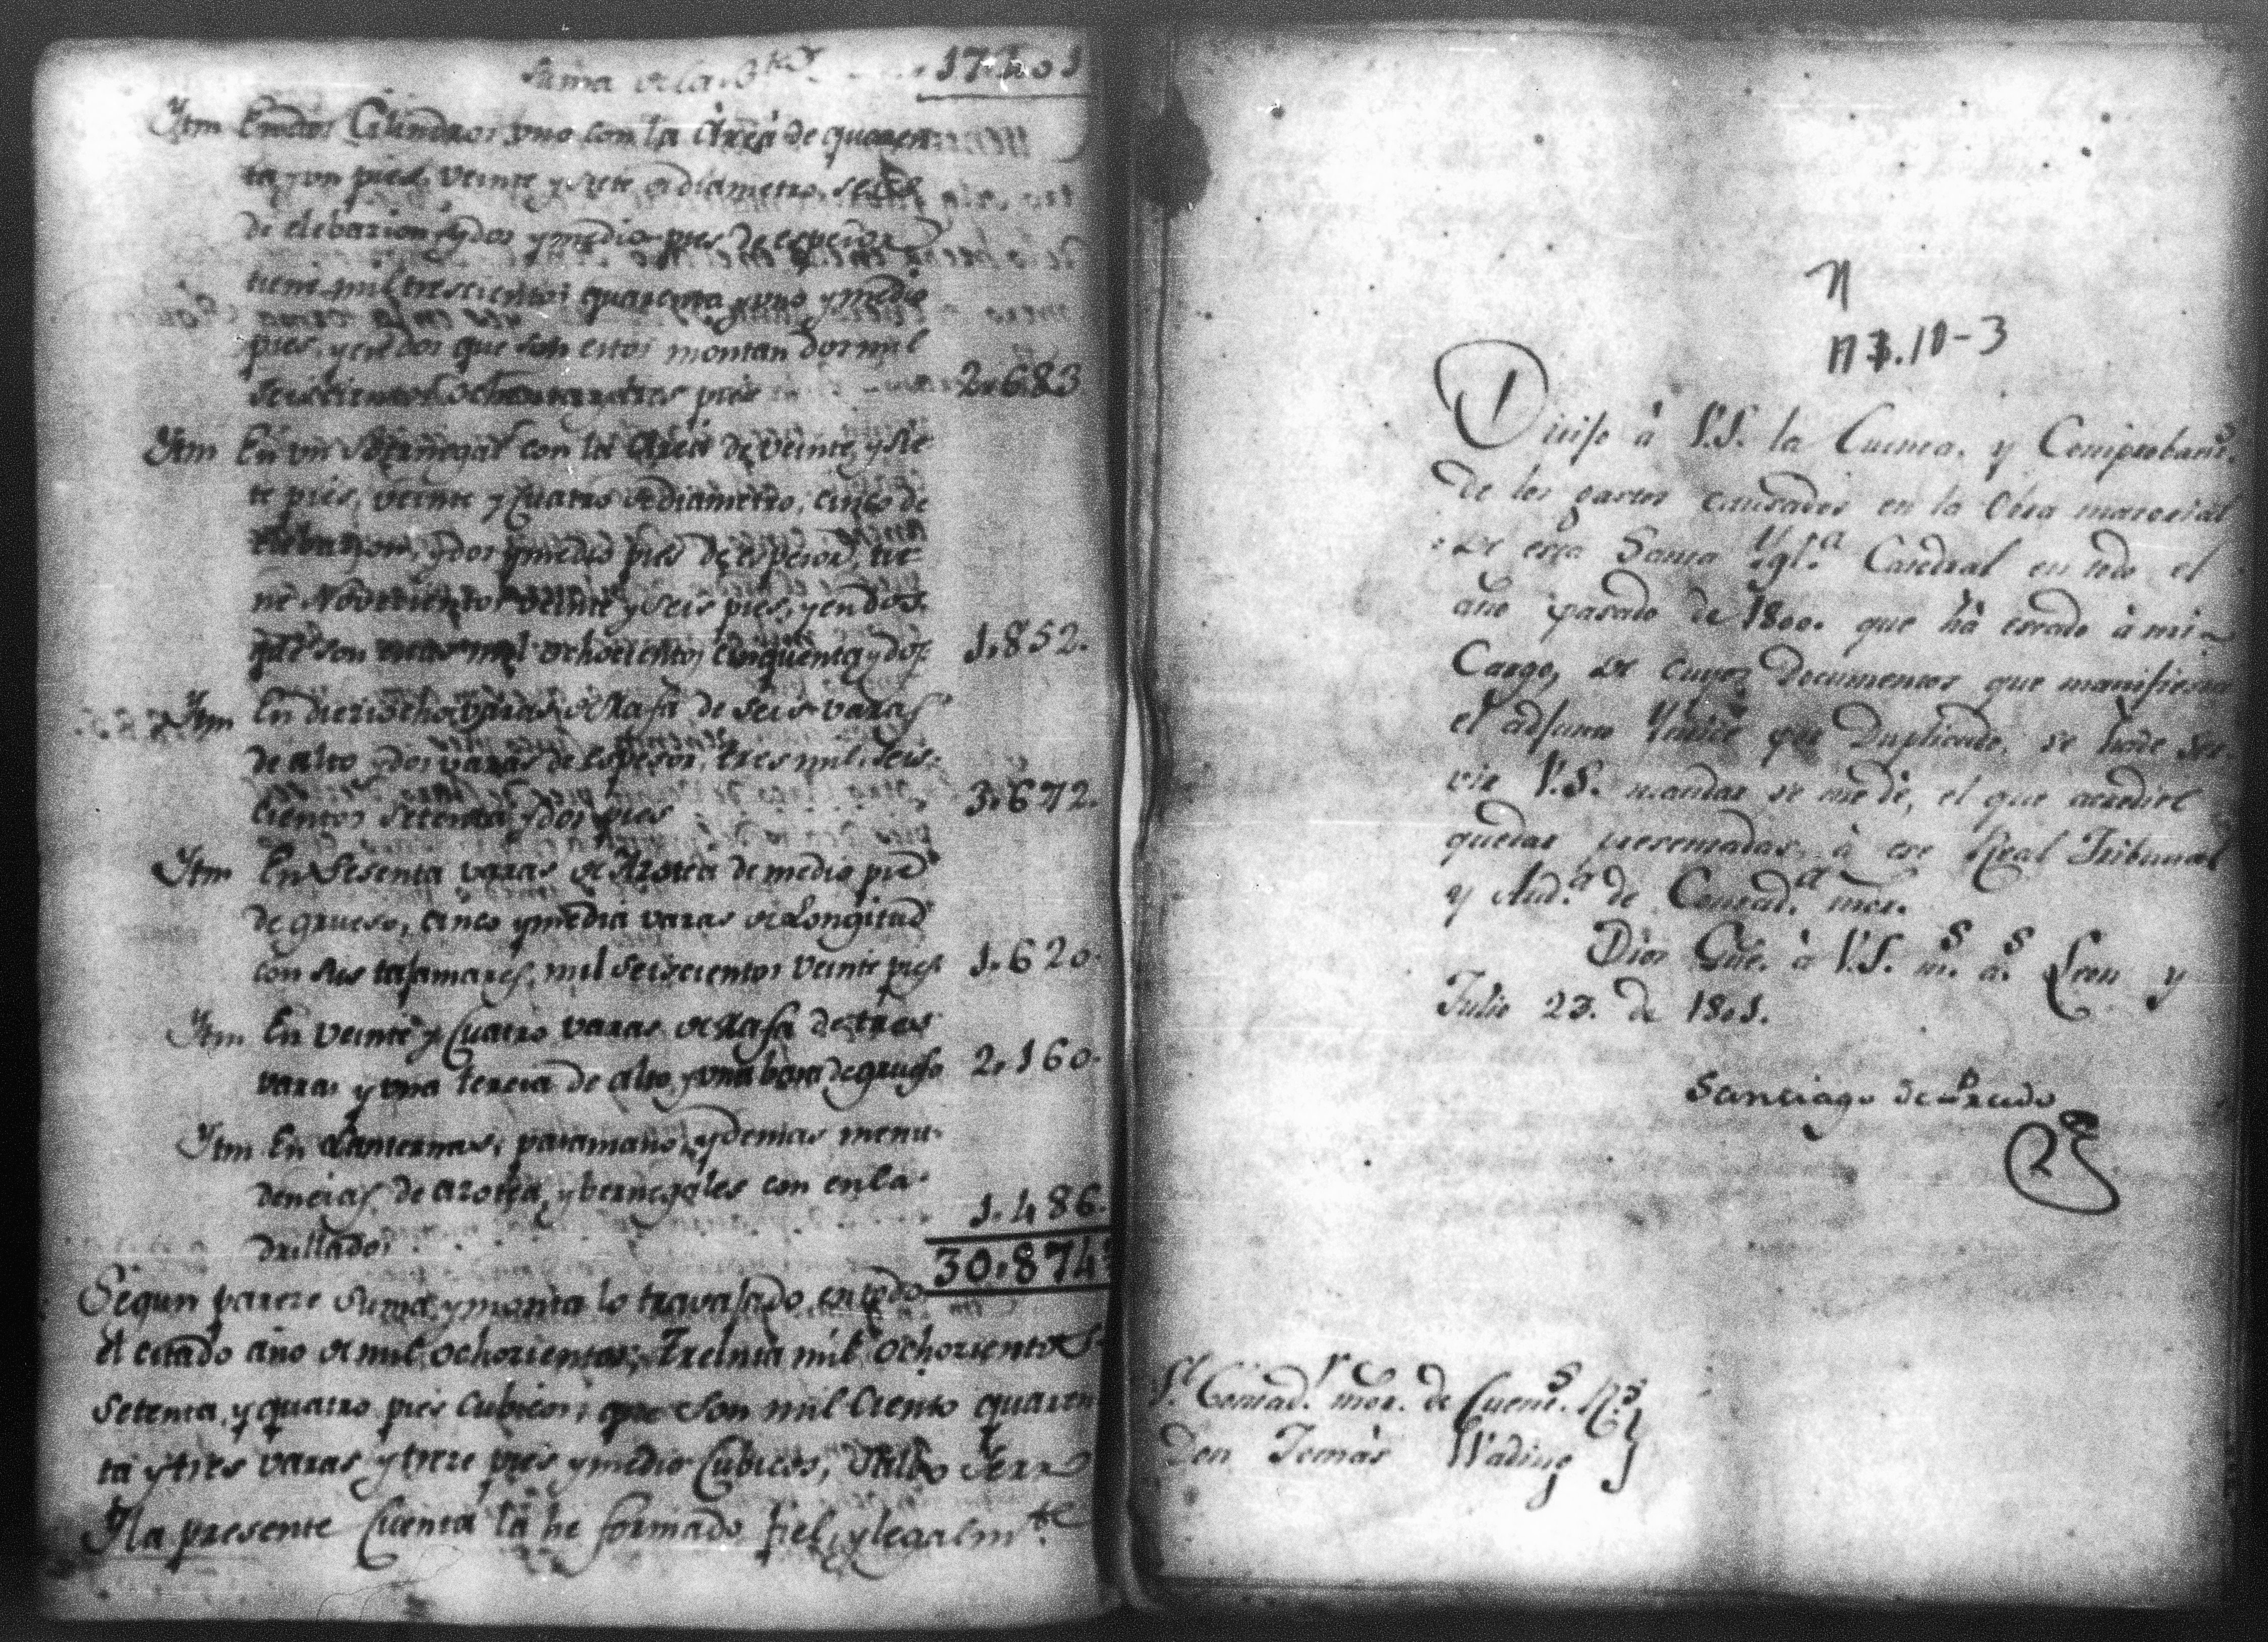 Suma de la b.ta 17.401
Ytm En dos Cilindros uno con la Area de quaren
ta y un pies, veinte y siete de diametro, seis
de elebazion, y dos y medio pies de espesor
tiene mil trescientos quarenta y uno y medio
pies, y en dos que son estos montan dos mil
seiscientos ochenta y tres pies 2.683
Ytm En un Bernegal con la Area de veinte y sie
te pies, veinte y Cuatro de diametro, cinco de
elebazion, y dos y medio pies de espesor, tie
ne Novecientos veinte y seis pies, y en dos
que son mil ochocientos cinquenta y dos 1.852.
Ytm En dieziocho varas de Rafa de seis varas
de alto y dos varas de espesor, tres mil seis
cientos setenta y dos pies 3.672.
Ytm En Sesenta varas de Azotea de medio pie
de grueso, cinco y media varas de Longitud
con sus tajamares, mil seiscientos veinte pies 1.620.
Ytm En veinte y Cuatro varas de Rafa de tres
varas y una tercia de alto, y una bara de grueso 2.160.
Ytm En Lanternas, pasamano, y demas menu
dencias, de azotea, y bernegales con enla
drillados 1.486.
30.874
Segun parece suma, y monta lo travajado, en todo
el citado año de mil ochozientos, Treinta mil ochozientos
setenta, y quatro pies Cubicos; que son mil Ciento quaren
ta y tres varas y treze pies y medio Cubicos, Salbo Yerro
Y la presente Cuenta la he formado fiel, y legalm.te
N 3.10-3
Dirijo à V.S. la Cuenta, y Comprobant.s
de los gastos causados en la Obra material
de esta Santa Ygl.a Catedral en todo el
año pasado de 1800. que hà estado à mi
Cargo, de cuyos Documentos que manifiesta
el adjunto Yndice por Duplicado, se hade ser
vir V.S. mandar se me dè, el que acredite
quedar presentadas à ese Real Tribunal
y Aud.a de Contad.a mor.
Dios Gue. à V.S. m.s a.s Leon y
Julio 23. de 1801.
Santiago de Predo
S.r Contad.r mor. de Cuent.s R.s
Don Tomàs Wading